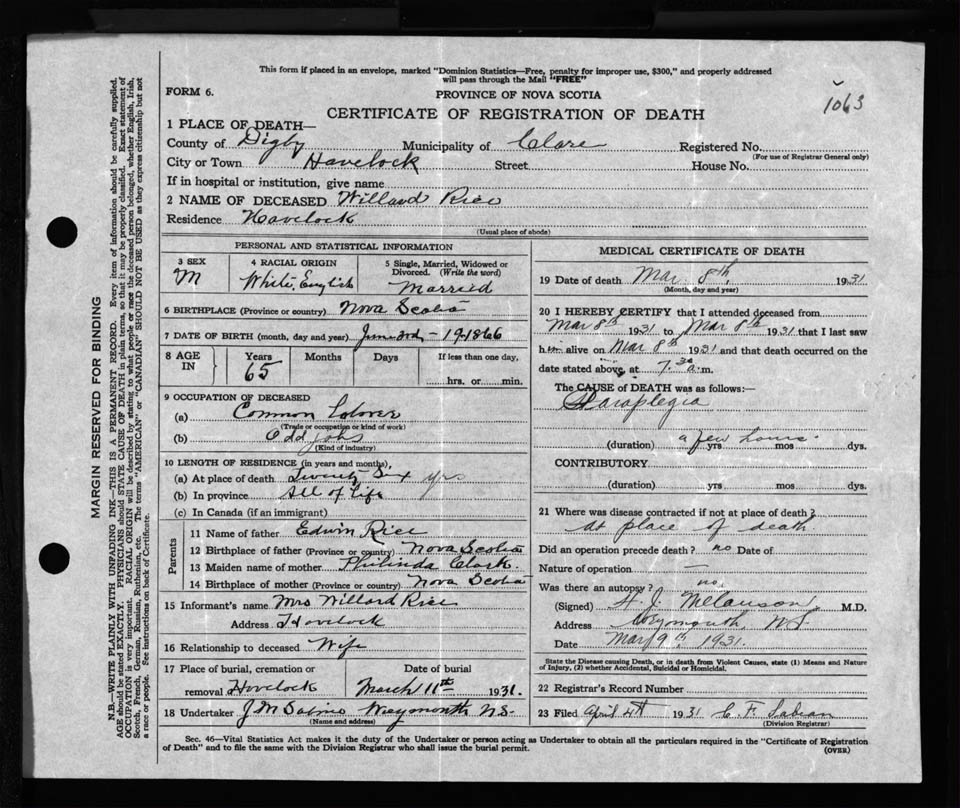 This form if placed in an envelope, marked "Dominion Statistics—Free, penalty for improper use, $300," and properly addressed
will pass through the Mail "FREE"
FORM 6.
PROVINCE OF NOVA SCOTIA
1063
CERTIFICATE OF REGISTRATION OF DEATH
1 PLACE OF DEATH—
County of Digby Municipality of Clare Registered No.
(For use of Registrar General only)
City or Town Havelock Street House No.
If in hospital or institution, give name
2 NAME OF DECEASED Willard Rice
Residence Havelock
(Usual place of abode)
PERSONAL AND STATISTICAL INFORMATION
3 SEX 4 RACIAL ORIGIN 5 Single, Married, Widowed or
Divorced. (Write the word)
M White, English Married
6 BIRTHPLACE (Province or country) Nova Scotia
7 DATE OF BIRTH (month, day and year) 1866
8 AGE IN Years Months Days If less than one day,
65 hrs. or min.
9 OCCUPATION OF DECEASED
(a) Common Laborer
(Trade or occupation or kind of work)
(b) Odd jobs
(Kind of industry)
10 LENGTH OF RESIDENCE (in years and months),
(a) At place of death Twenty Six yrs
(b) In province All of Life
(c) In Canada (if an immigrant)
Parents
11 Name of father Edwin Rice
12 Birthplace of father (Province or country) Nova Scotia
13 Maiden name of mother Philinda Clark
14 Birthplace of mother (Province or country) Nova Scotia
15 Informant's name Mrs Willard Rice
Address Havelock
16 Relationship to deceased Wife
17 Place of burial, cremation or Date of burial
removal Havelock March 11th 1931.
18 Undertaker J M Weymouth N.S.
(Name and address)
MEDICAL CERTIFICATE OF DEATH
19 Date of death Mar 8th, 1931
(Month, day and year)
20 I HEREBY CERTIFY that I attended deceased from
Mar 8th 1931 to Mar 8th 1931 that I last saw
him alive on Mar 8th 1931 and that death occurred on the
date stated above at 7.30 a.m.
The CAUSE OF DEATH was as follows:
Paraplegia
(duration) a few hours yrs mos dys.
CONTRIBUTORY
(duration) yrs. mos. dys.
21 Where was disease contracted if not at place of death?
at place of death.
Did an operation precede death? no Date of
Nature of operation —
Was there an autopsy? no
(Signed) H. J. Melanson M.D.
Address Weymouth, N.S.
Date Mar 9th 1931.
State the Disease causing Death, or in death from Violent Causes, state (1) Means and Nature
of Injury, (2) whether Accidental, Suicidal or Homicidal.
22 Registrar's Record Number
23 Filed April 4th 1931 C. F.
(Division Registrar)
Sec. 46—Vital Statistics Act makes it the duty of the Undertaker or person acting as Undertaker to obtain all the particulars required in the "Certificate of Registration
of Death" and to file the same with the Division Registrar who shall issue the burial permit. (OVER)
MARGIN RESERVED FOR BINDING
N.B.—WRITE PLAINLY WITH UNFADING INK—THIS IS A PERMANENT RECORD. Every item of information should be carefully supplied.
AGE should be stated EXACTLY. PHYSICIANS should STATE CAUSE OF DEATH in plain terms, so that it may be properly classified. Exact statement of
OCCUPATION is very important. RACIAL ORIGIN will be described by stating to what people or race the deceased person belonged, whether English, Irish,
Scotch, French, German, Russian, Ruthenian, etc. The terms "AMERICAN" or "CANADIAN" SHOULD NOT BE USED as they express citizenship but not
a race or people. See instructions on back of Certificate.